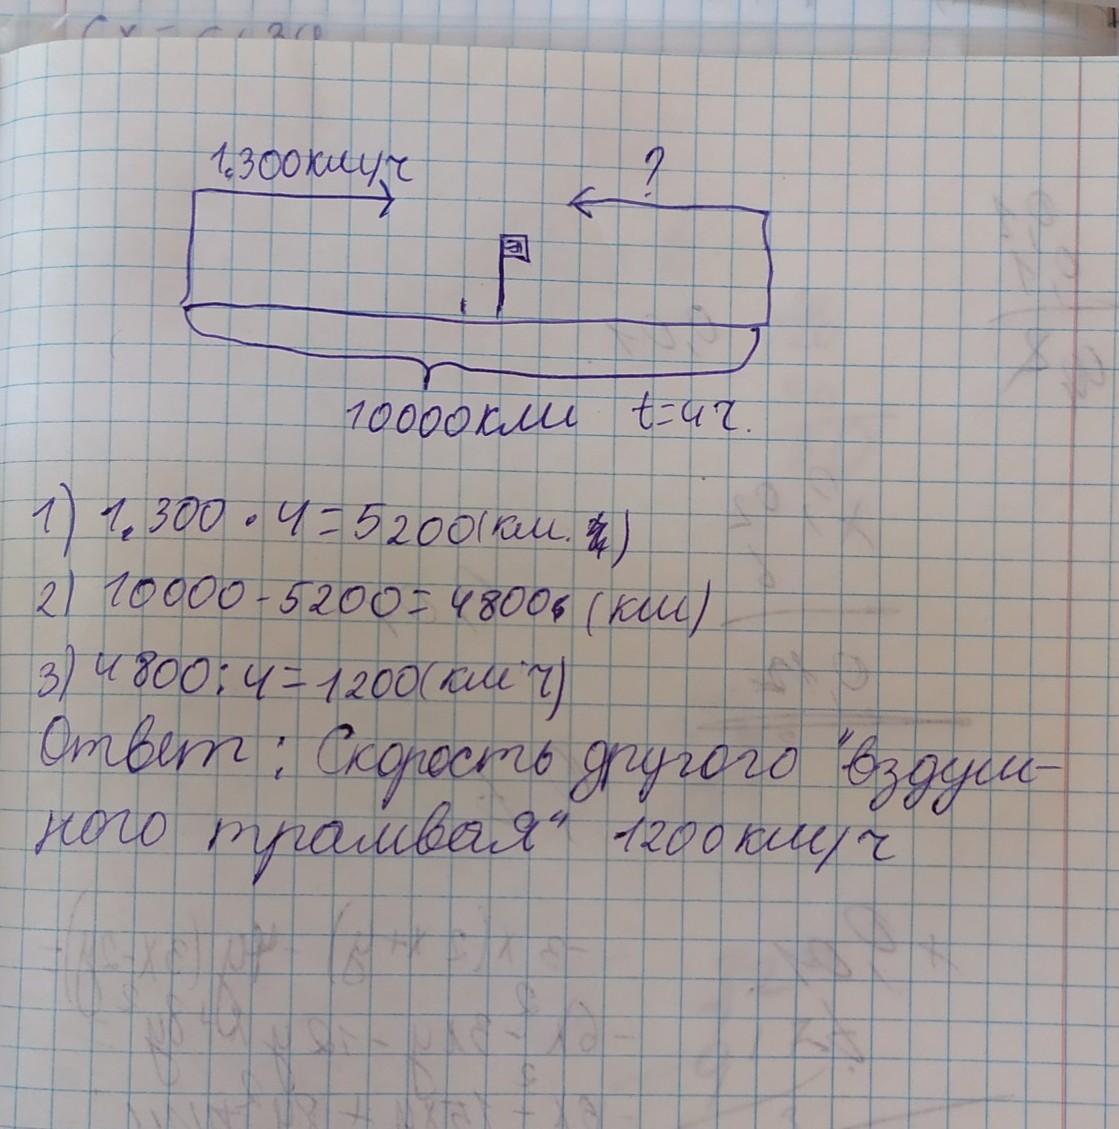 1.300км/ч
?
10000км t=4ч.
1) 1.300 · 4=5200(км.)
2) 10000-5200=4800 (км)
3) 4800:4=1200(км ч)
Ответ: Скорость другого "воздуш-
ного трамвая" 1200км/ч